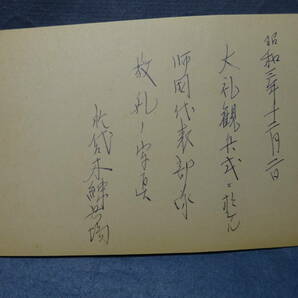 昭和三年十二月二日
大礼観兵式ニ於ケル
師団代表部隊
敬礼ノ写真
代々木練兵場